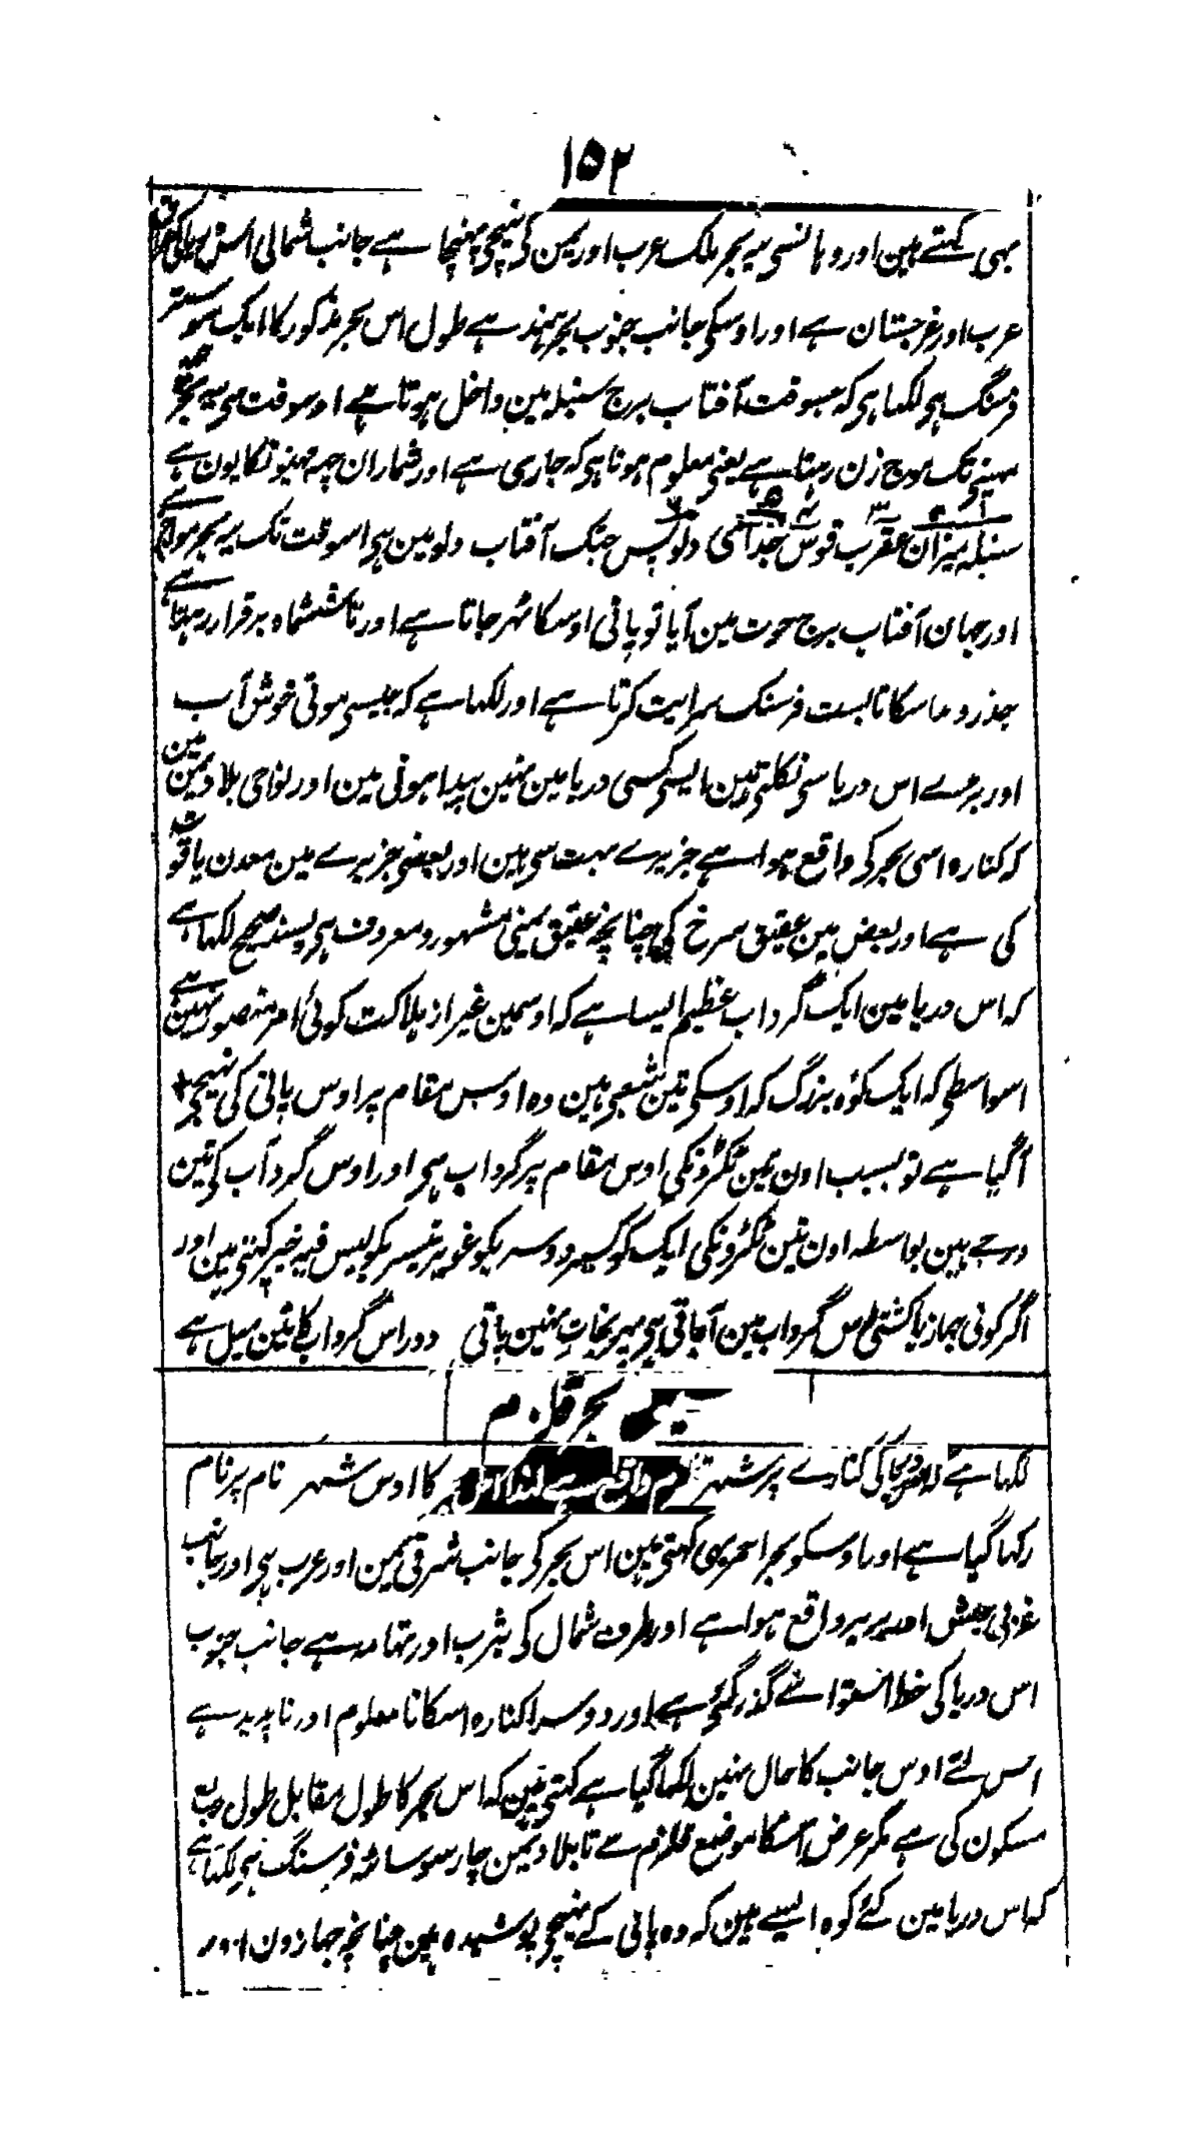 ۱۵۲
بھی کہتے ہین اور وہانسی یہ بحر ملک عرب اور یمن کی نیچی پہنچا ہے جانب شمالی اس دریا کی عراق
عرب اور غرجستان ہے اور اوسکی جانب جنوب بحر ہند ہے طول اس بحر مذکور کا ایک سو ستر
فرسنگ ہی لکھا ہی کہ جسوقت آفتاب برج سنبلہ مین داخل ہوتا ہے اوسوقت سی یہ بحر چھہ
مہینی تک موج زن رہتا ہے یعنی معلوم ہوتا ہی کہ جاری ہے اور شمار ان چھہ مہینونکا یون ہے
سنبلہ میزان عقرب قوس جدی دلو پس جبتک آفتاب دلو مین ہی اسوقت تک یہ بحر مواج ہے
اور جہان آفتاب برج حوت مین آیا تو پانی اوسکا ٹہر جاتا ہے اور تا ششماہ برقرار رہتا ہے
جذر و مد اسکا تا بست فرسنگ سرایت کرتا ہے اور لکھا ہے کہ جیسی موتی خوش آب
اور بڑے اس دریا سی نکلتی ہین ایسی کسی دریا مین نہین پیدا ہوتی ہین اور نواحی بلاد یمن مین
کہ کنارہ اسی بحر کی واقع ہوا ہے جزیرے بہت سی ہین اور بعضی جزیرے مین معدن یاقوت
کی ہے اور بعض مین عقیق سرخ کی چنانچہ عقیق یمنی مشہور و معروف ہی بسند صحیح لکھا ہے
کہ اس دریا مین ایک گرداب عظیم ایسا ہے کہ اوسمین غیر از ہلاکت کوئی امر متصور نہین ہے
اسواسطی کہ ایک کوہ بزرگ کہ اوسکی تین شعبی ہین وہ اوس مقام پر اوس پانی کی نیچی
آگیا ہے تو بسبب اون تین ٹکڑونکی اوس مقام پر گرداب ہی اور اوس گرداب کی تین
درجے ہین بواسطہ اون تین ٹکڑونکی ایک کو کسیر دوسریکو عویر تیسریکو لیس فیہ خیر کہتی ہین اور
اگر کوئی جہاز یا کشتی اس گرداب مین آجاتی ہی پھر نجات نہین پاتی دور اس گرداب کا تین میل ہے
بحر قلزم
لکھا ہے کہ اس دریا کی کنارے پر شہر قلزم واقع ہے لہذا اس بحر کا اوس شہر نام پر نام
رکھا گیا ہے اور اوسکو بحر احمر بھی کہتی ہین اس بحر کی جانب شرقی یمن اور عرب ہی اور جانب
غربی حبش اور بربر واقع ہوا ہے اور طرف شمال کی یثرب اور تہامہ ہے جانب جنوب
اس دریا کی خط استوا سے گذر گئی ہے اور دوسرا کنارہ اسکا نامعلوم اور ناپدید ہے
اس لئے اوس جانب کا حال نہین لکھا گیا ہے کہتی ہین کہ اس بحر کا طول مقابل طول ربع
مسکون کی ہے مگر عرض اسکا موضع قلزم سے تا بلاد یمن چار سو ساٹھ فرسنگ ہی لکھا ہے
کہ اس دریا مین کئے کوہ ایسے ہین کہ وہ پانی کے نیچی پوشیدہ ہین چنانچہ جہازون اور